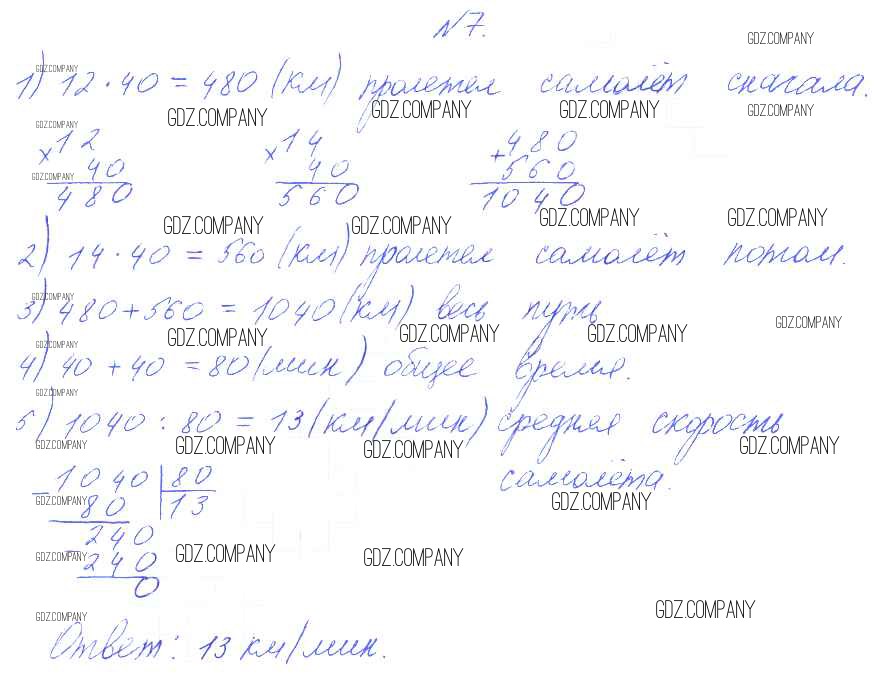 №7.
GDZ.COMPANY
GDZ.COMPANY
1) 12 · 40 = 480 (км) пролетел самолёт сначала.
GDZ.COMPANY GDZ.COMPANY GDZ.COMPANY GDZ.COMPANY
GDZ.COMPANY
×12 ×14 +480
40 40 560
GDZ.COMPANY
480 560 1040
GDZ.COMPANY GDZ.COMPANY GDZ.COMPANY GDZ.COMPANY
2) 14 · 40 = 560 (км) пролетел самолёт потом.
GDZ.COMPANY
3) 480 + 560 = 1040 (км) весь путь
GDZ.COMPANY GDZ.COMPANY GDZ.COMPANY GDZ.COMPANY
GDZ.COMPANY
4) 40 + 40 = 80 (мин) общее время.
GDZ.COMPANY
5) 1040 : 80 = 13 (км/мин) средняя скорость
GDZ.COMPANY GDZ.COMPANY GDZ.COMPANY GDZ.COMPANY
самолёта.
_1040 | 80
GDZ.COMPANY GDZ.COMPANY
80 | 13
_240
GDZ.COMPANY GDZ.COMPANY GDZ.COMPANY
240
0
GDZ.COMPANY GDZ.COMPANY
Ответ: 13 км/мин.